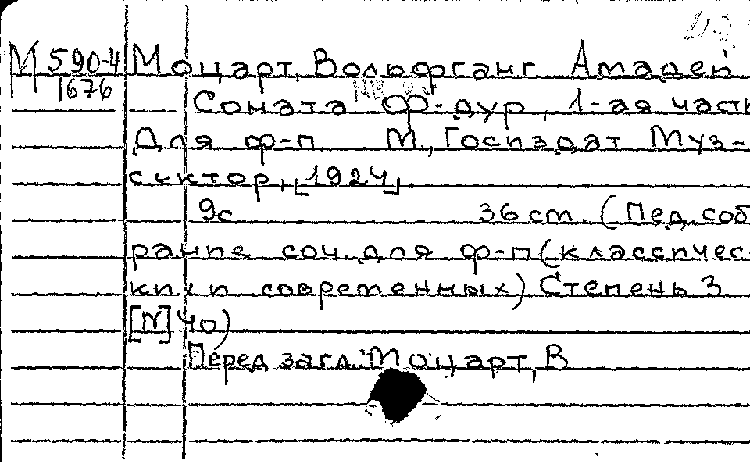 М 590-4 Моцарт, Вольфганг Амадей
1676 Соната ф-дур, 1-ая часть
Для ф-п М., Госиздат Муз-
сиктор, [1924].
9с 36 cm. (Пед. соб
рание соч. для ф-п (классичес-
ких и современных) Степень 3
[N] 40)
Перед загл.: Моцарт, В